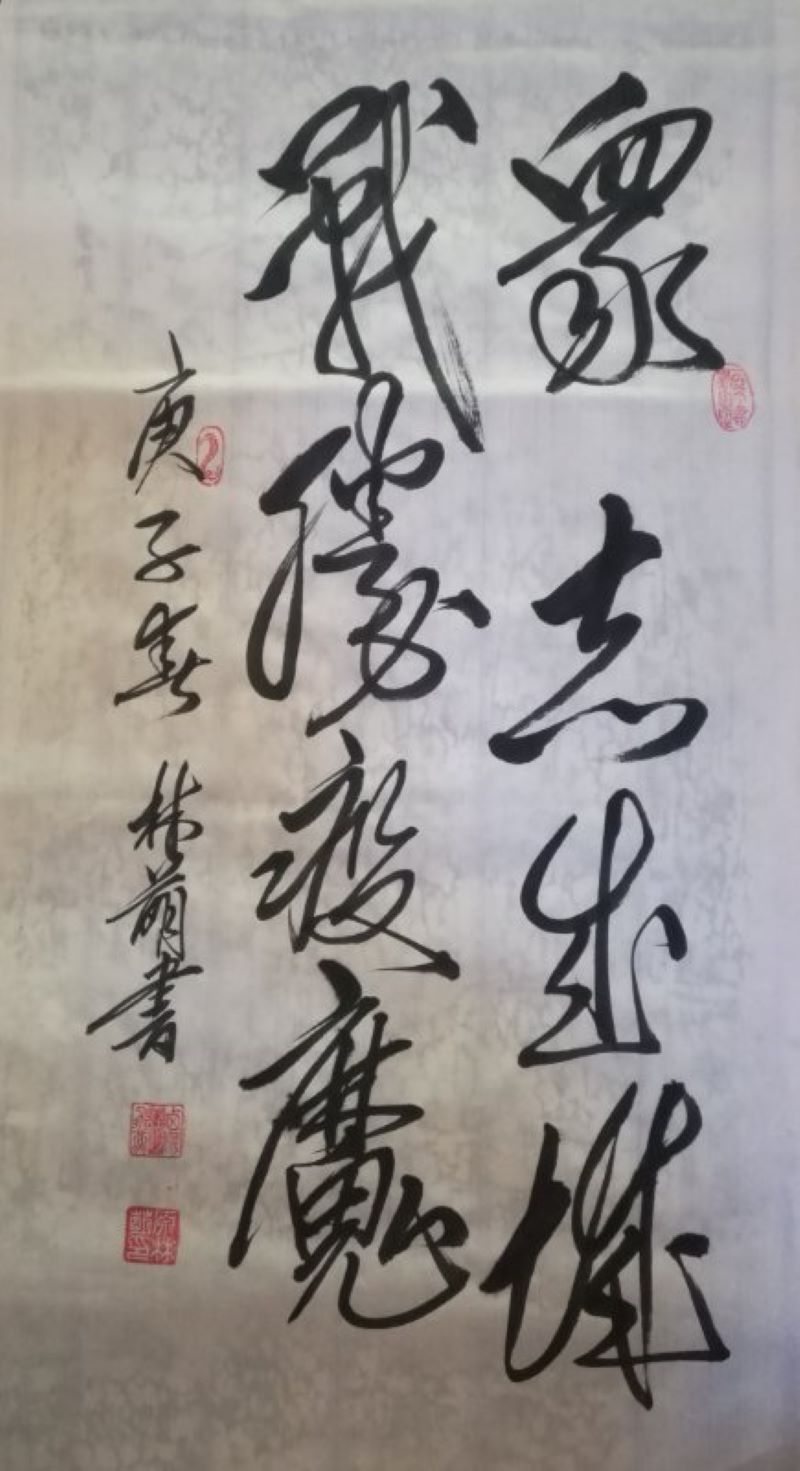 眾志成城
戰勝疫魔
庚子春 林萌書